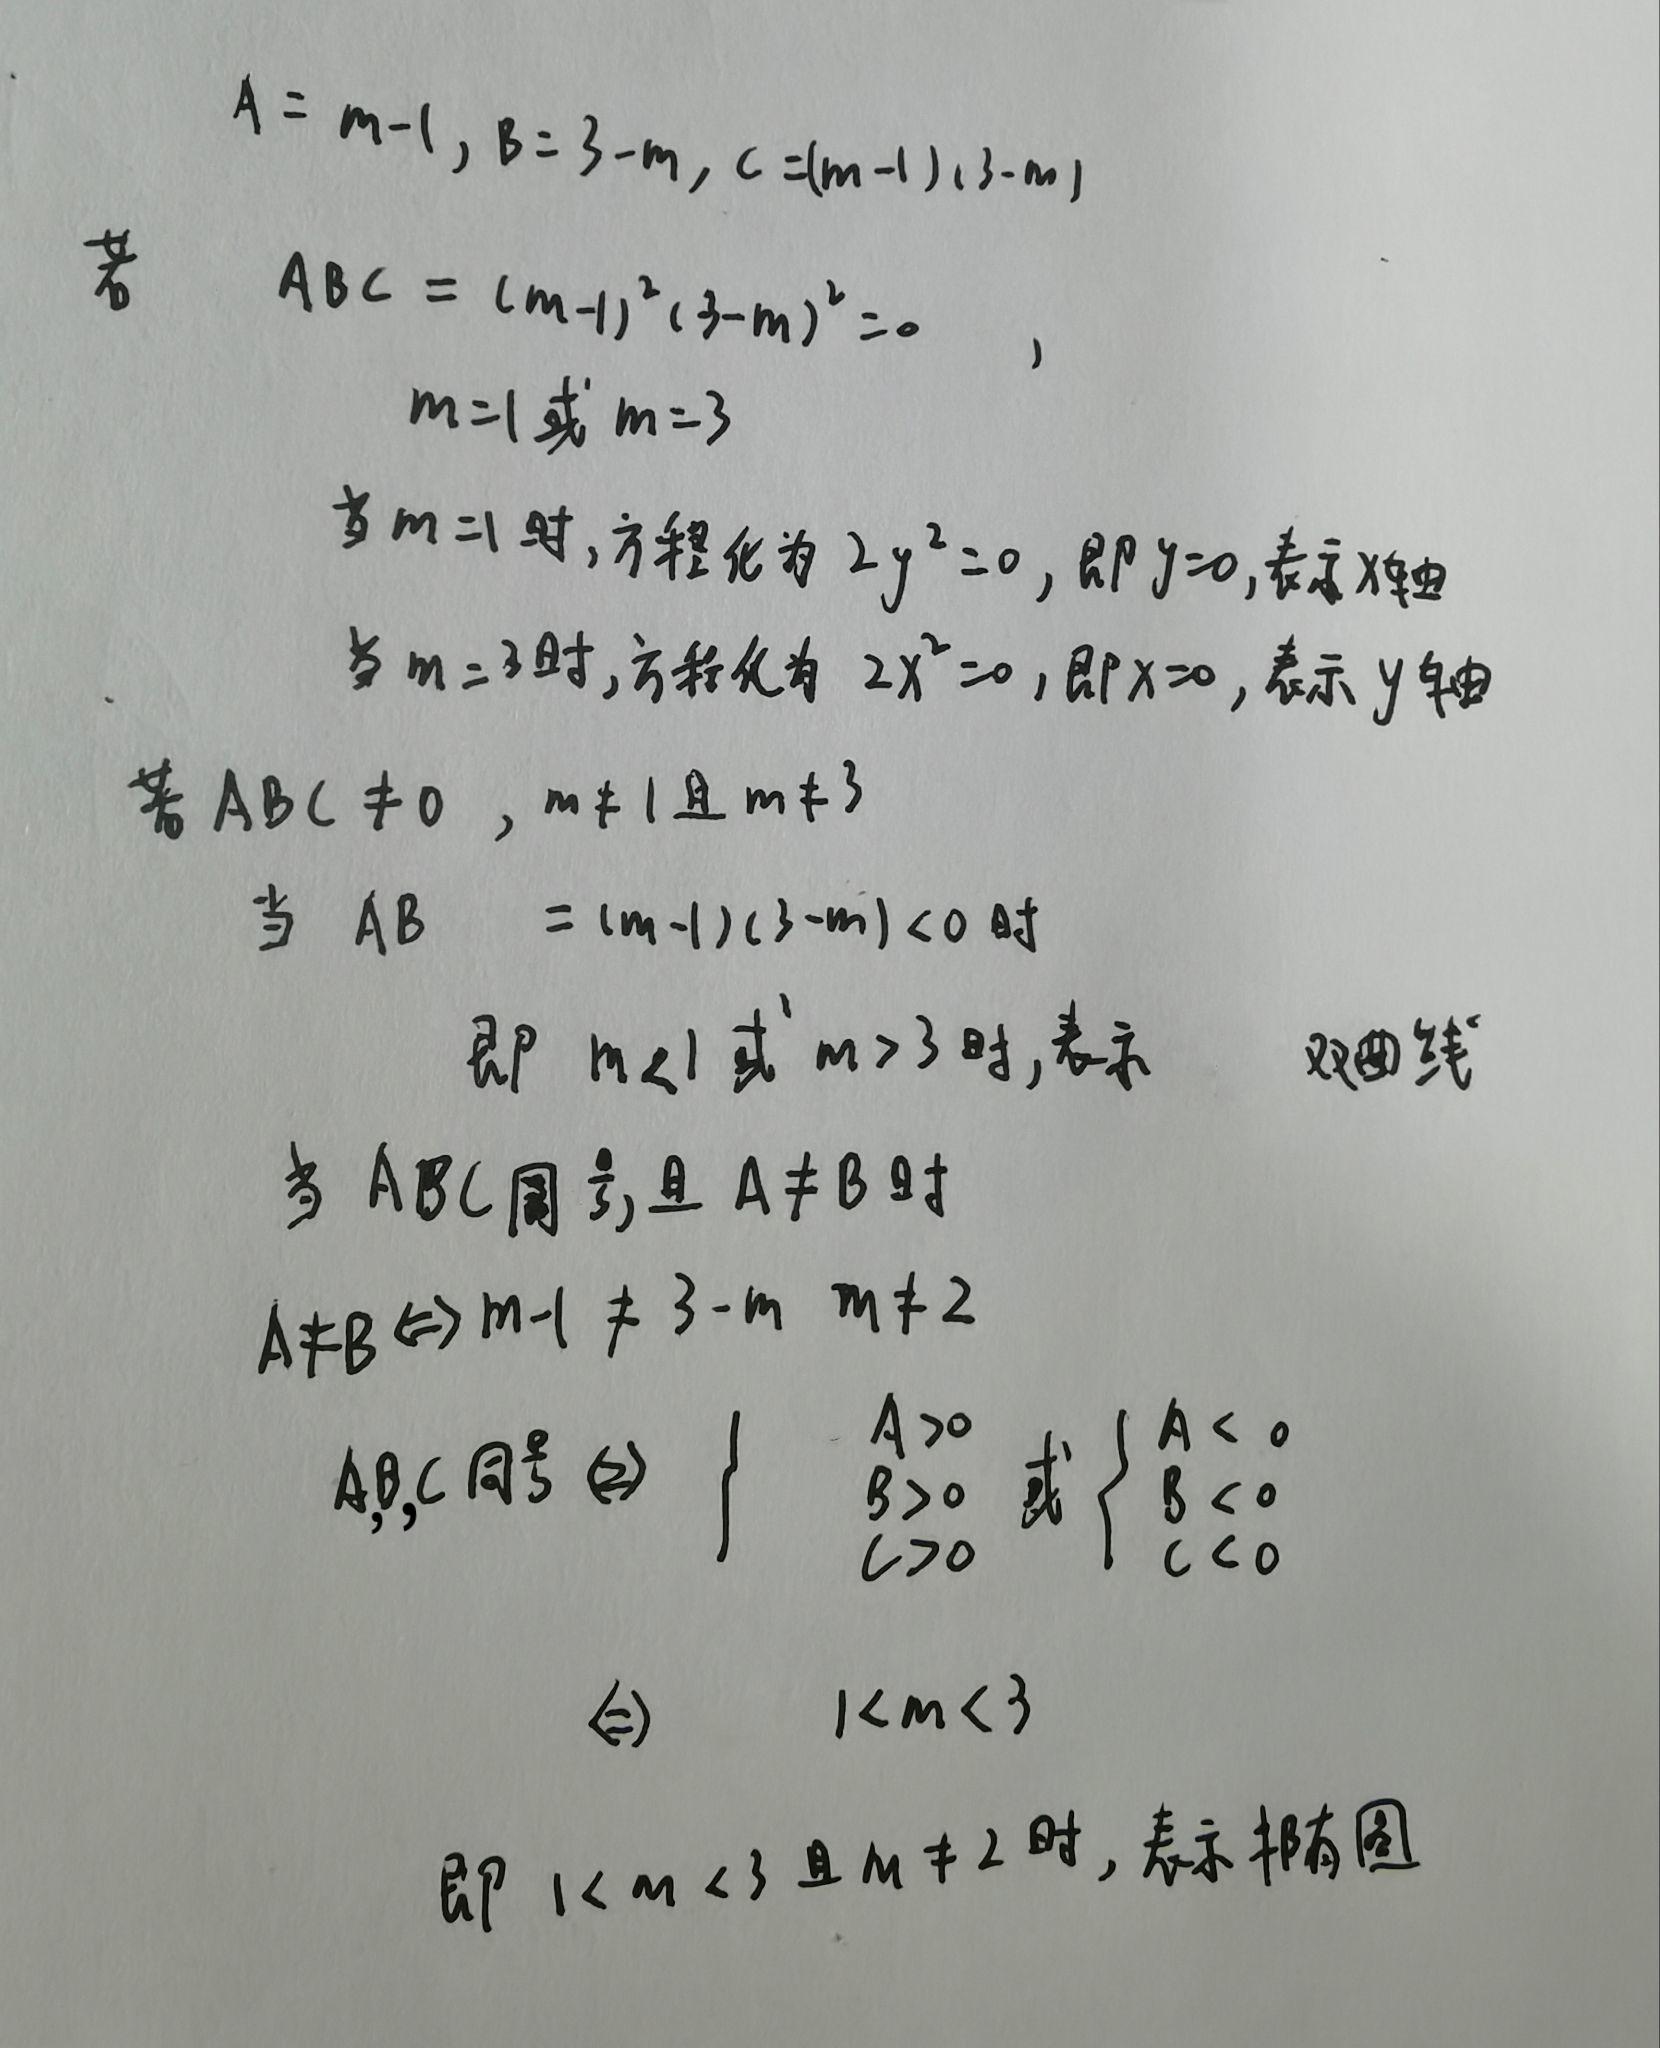 A = m-1, B = 3-m, C = (m-1)(3-m)
若 ABC = (m-1)²(3-m)² = 0 ,
m=1 或 m=3
当 m=1 时, 方程化为 2y²=0, 即 y=0, 表示 x轴
当 m=3时, 方程化为 2x²=0, 即 x=0, 表示 y轴
若 ABC ≠ 0 , m≠1 且 m≠3
当 AB = (m-1)(3-m) < 0 时
即 m<1 或 m>3 时, 表示 双曲线
当 ABC 同号, 且 A≠B 时
A≠B ⇔ m-1 ≠ 3-m m≠2
A,B,C 同号 ⇔ { A>0 B>0 C>0 或 { A<0 B<0 C<0
⇔ 1<m<3
即 1<m<3 且 m≠2 时, 表示 椭圆